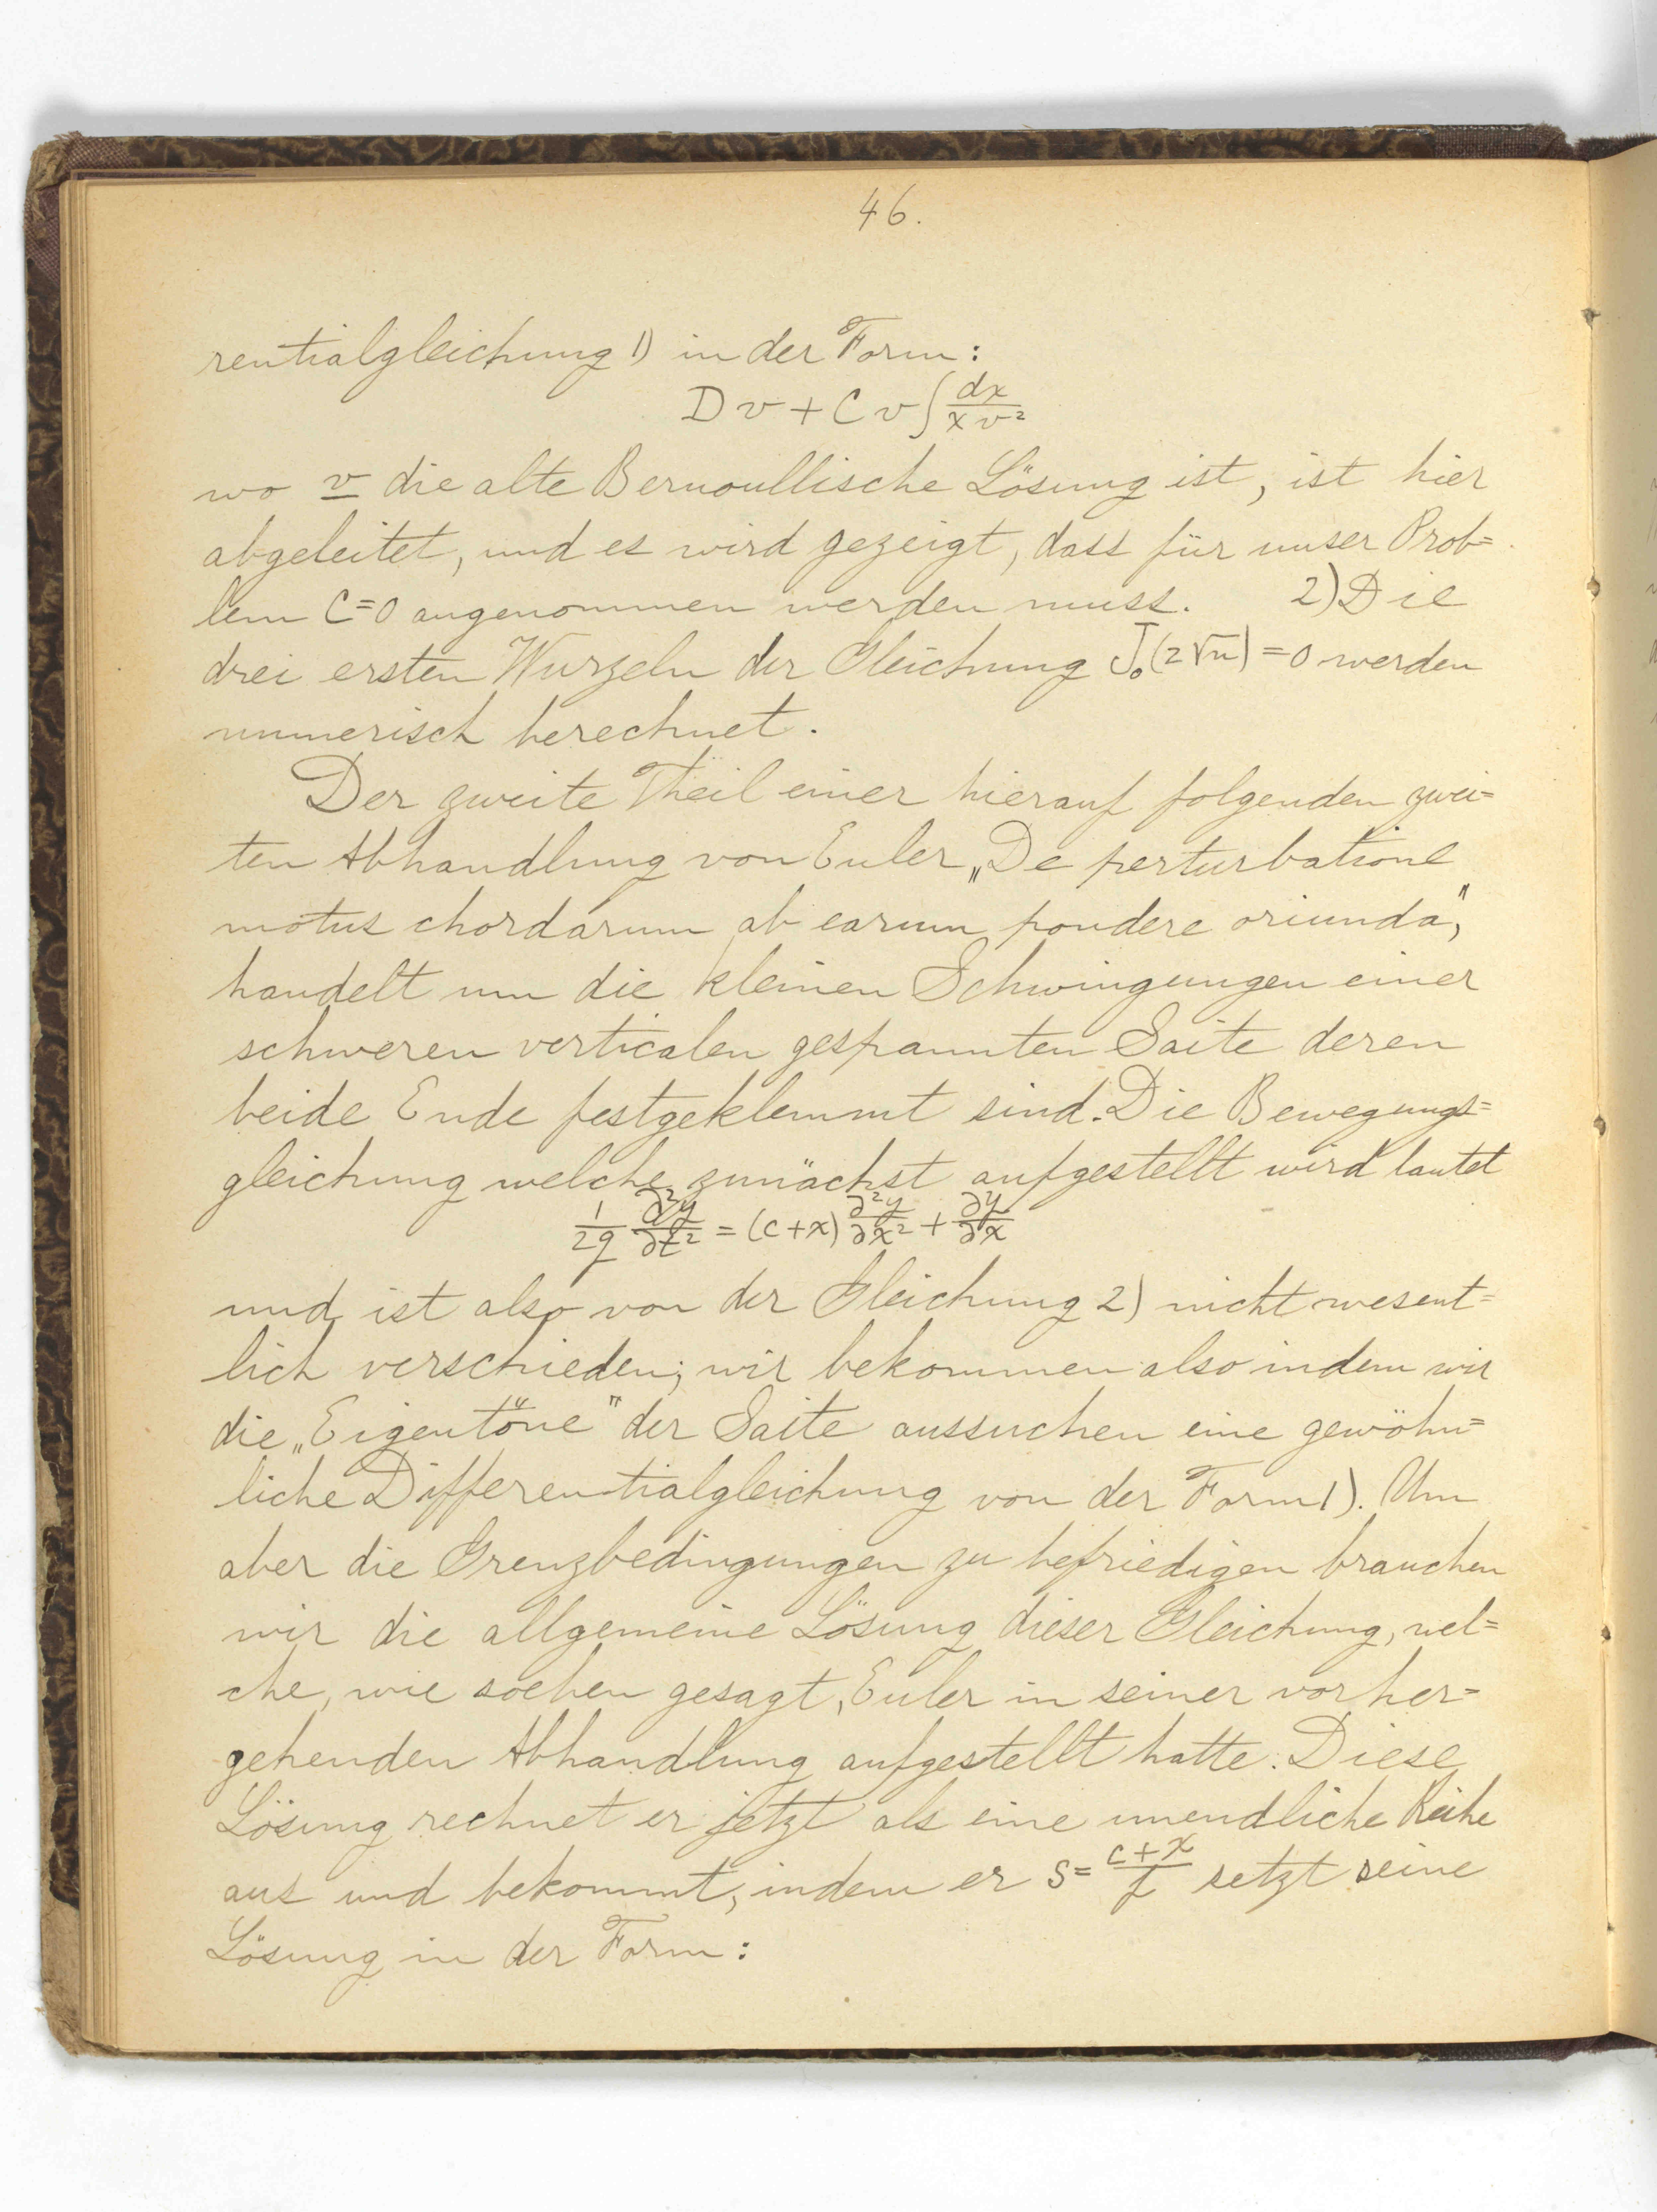 46.
rentialgleichung 1) in der Form:
Dv + Cv ∫ dx/(x v²)
wo v die alte Bernoullische Lösung ist, ist hier
abgeleitet, und es wird gezeigt, dass für unser Prob=
lem C=0 angenommen werden muss. 2) Die
drei ersten Wurzeln der Gleichung J₀(2√u)=0 werden
numerisch berechnet.
Der zweite Theil einer hierauf folgenden zwei=
ten Abhandlung von Euler „De perturbatione
motus chordarum ab earum pondere oriunda",
handelt um die kleinen Schwingungen einer
schweren verticalen gespannten Saite deren
beide Ende festgeklemmt sind. Die Bewegungs=
gleichung welche zunächst aufgestellt wird lautet
1/2g ∂²y/∂t² = (c+x) ∂²y/∂x² + ∂y/∂x
und ist also von der Gleichung 2) nicht wesent=
lich verschieden; wir bekommen also indem wir
die „Eigentöne" der Saite aussuchen eine gewöhn=
liche Differentialgleichung von der Form 1). Um
aber die Grenzbedingungen zu befriedigen brauchen
wir die allgemeine Lösung dieser Gleichung, wel=
che, wie soeben gesagt, Euler in seiner vorher=
gehenden Abhandlung aufgestellt hatte. Diese
Lösung rechnet er jetzt als eine unendliche Reihe
aus und bekommt, indem er s = (c+x)/f setzt seine
Lösung in der Form: